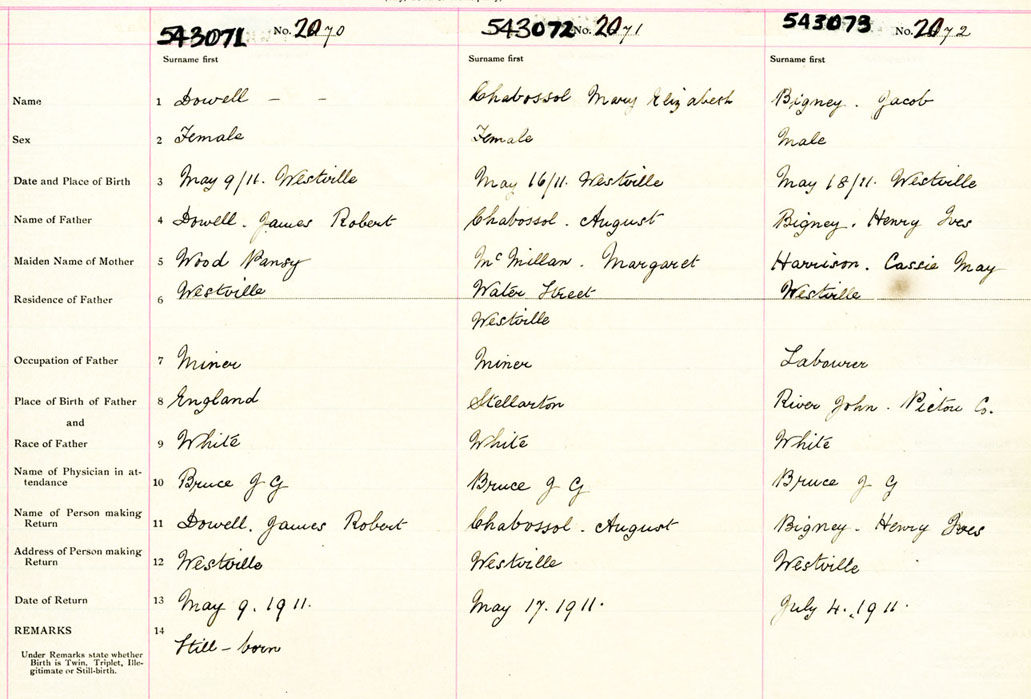 543071 No. 2070 543072 No. 2071 543073 No. 2072
Surname first Surname first Surname first
Name 1 Dowell – – Chabossol Mary Elizabeth Bigney. Jacob
Sex 2 Female Female Male
Date and Place of Birth 3 May 9/11. Westville May 16/11. Westville May 18/11. Westville
Name of Father 4 Dowell. James Robert Chabossol. August Bigney. Henry Ives
Maiden Name of Mother 5 Wood Pansy McMillan. Margaret Harrison. Cassie May
Residence of Father 6 Westville Water Street Westville
Westville
Occupation of Father 7 Miner Miner Labourer
Place of Birth of Father 8 England Stellarton River John. Pictou Co.
and
Race of Father 9 White White White
Name of Physician in at-
tendance 10 Bruce J G Bruce J G Bruce J G
Name of Person making
Return 11 Dowell. James Robert Chabossol. August Bigney. Henry Ives
Address of Person making
Return 12 Westville Westville Westville
Date of Return 13 May 9. 1911. May 17. 1911. July 4. 1911.
REMARKS 14
Still-born
Under Remarks state whether
Birth is Twin, Triplet, Ille-
gitimate or Still-birth.